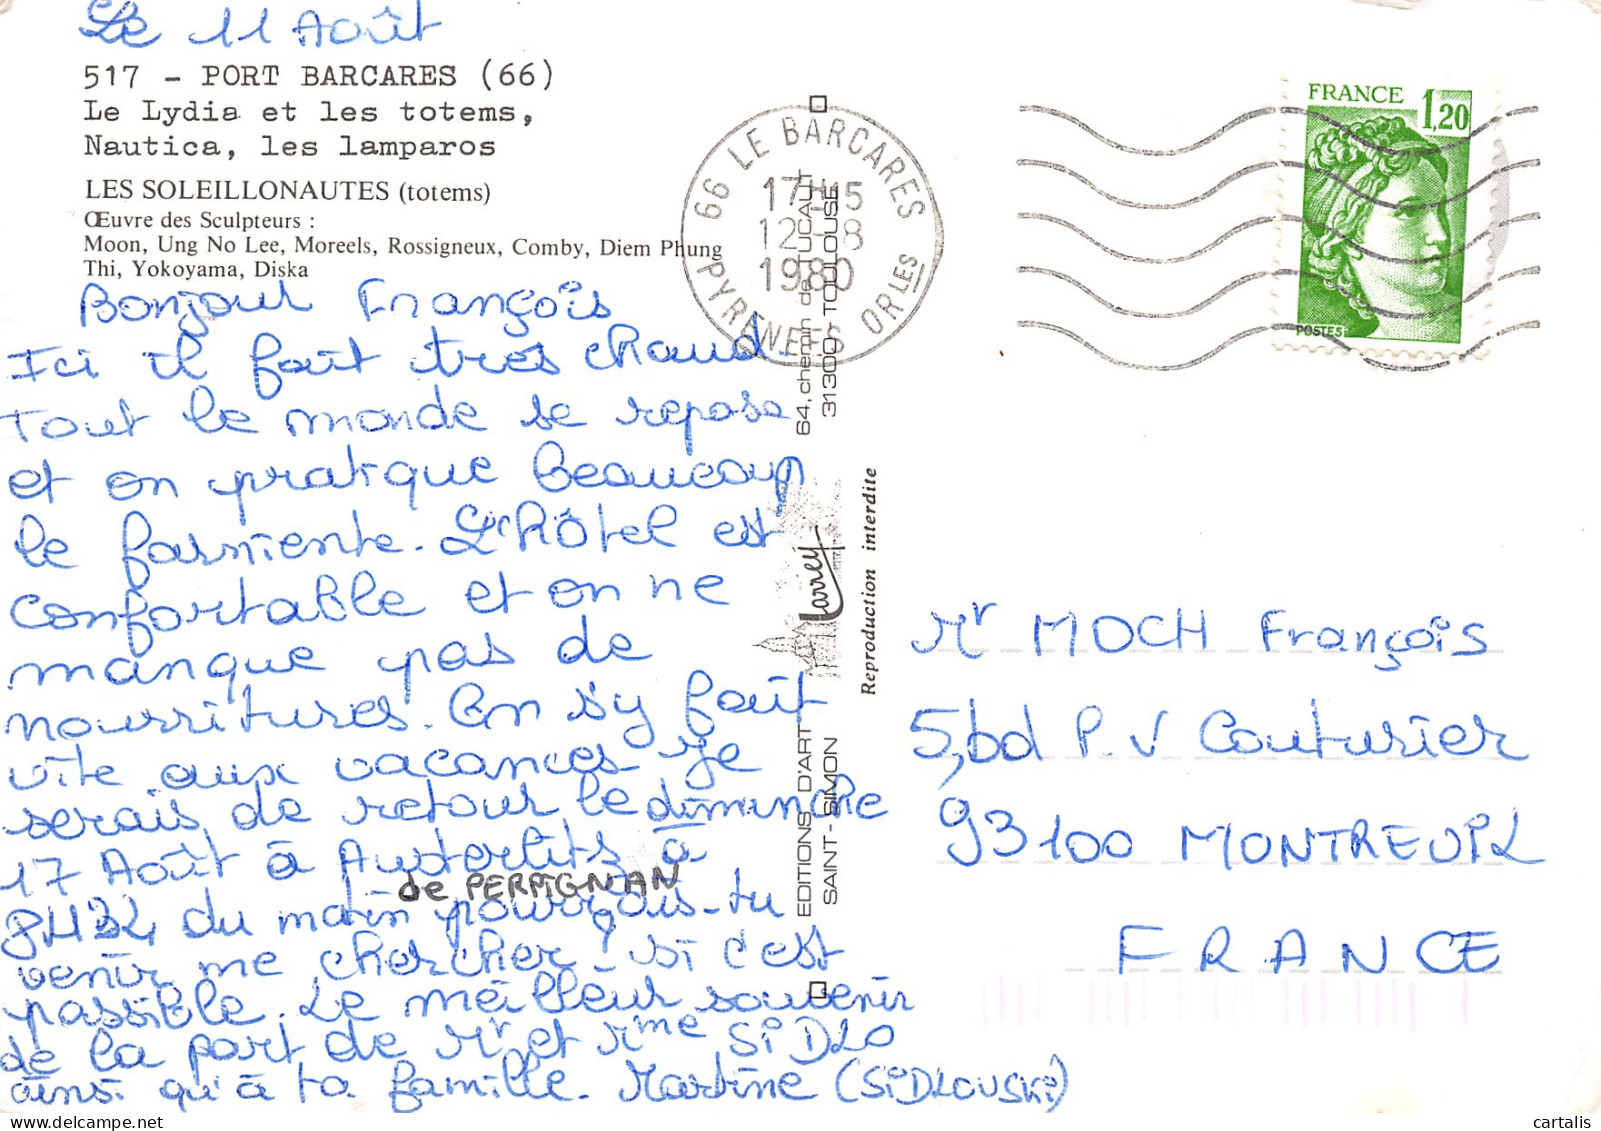 Le 11 Août
517 - PORT BARCARES (66)
Le Lydia et les totems,
Nautica, les lamparos
LES SOLEILLONAUTES (totems)
Œuvre des Sculpteurs :
Moon, Ung No Lee, Moreels, Rossigneux, Comby, Diem Phung
Thi, Yokoyama, Diska
Bonjour François
Ici il fait très chaud.
Tout le monde se repose
et on pratique beaucoup
le farniente. L'hôtel est
confortable et on ne
manque pas de
nourritures. On s'y fait
vite aux vacances je
serais de retour le dimanche
17 Août à Austerlitz à
de PERPIGNAN
du matin pourrais-tu
venir me chercher, si c'est
possible. Le meilleur souvenir
de la part de Mr et Mme SiDLO
ainsi qu'à ta famille. Martine (SiDLOUSKi)
66 LE BARCARES
17H15
12-8
1980
PYRENEES ORLES
64, chemin de TUCAUT
31300 - TOULOUSE
Larrey
EDITIONS D'ART
SAINT-SIMON
Reproduction interdite
FRANCE 1,20
POSTES
Mr MOCH François
5, bd P. V Couturier
93100 MONTREUIL
FRANCE
cartalis